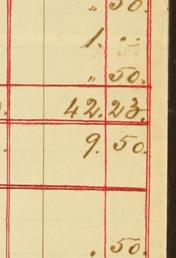 „ 50.
1. "
„ 50.
42.23.
9. 50.
. 50.